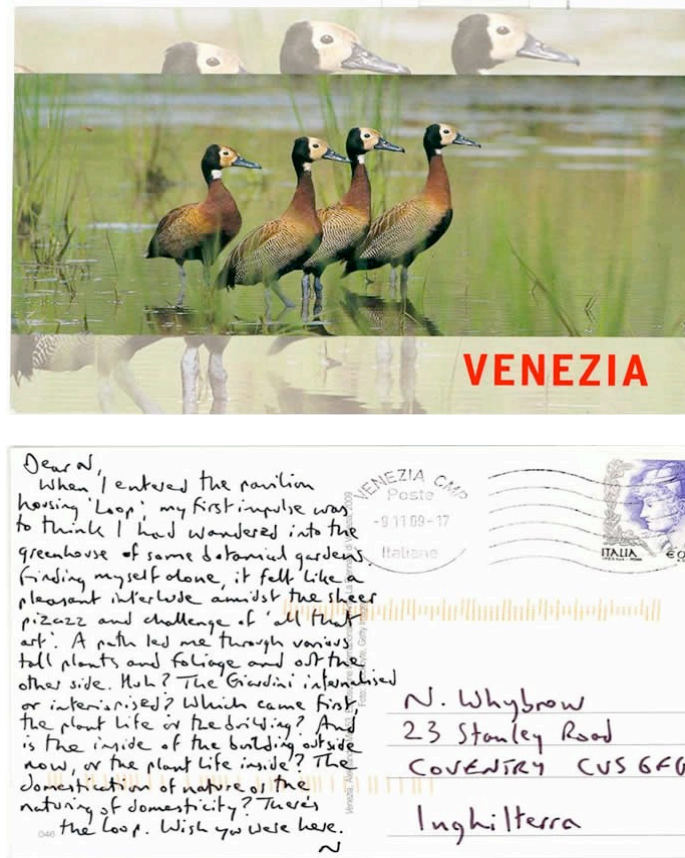 VENEZIA
Dear N,
When I entered the pavilion
housing 'Loop', my first impulse was
to think I had wandered into the
greenhouse of some botanical gardens.
Finding myself alone, it felt like a
pleasant interlude amidst the sheer
pizazz and challenge of 'all that
art'. A path led me through various
tall plants and foliage and out the
other side. Huh? The Giardini internalised
or interiorised? Which came first,
the plant life or the building? And
is the inside of the building outside
now, or the plant life inside? The
domestication of nature or the
naturing of domesticity? There's
the loop. Wish you were here.
N
046
VENEZIA CMP
Poste
-9 11 09-17
Italiane
ITALIA
N. Whybrow
23 Stanley Road
COVENTRY CV5 6FG
Inghilterra